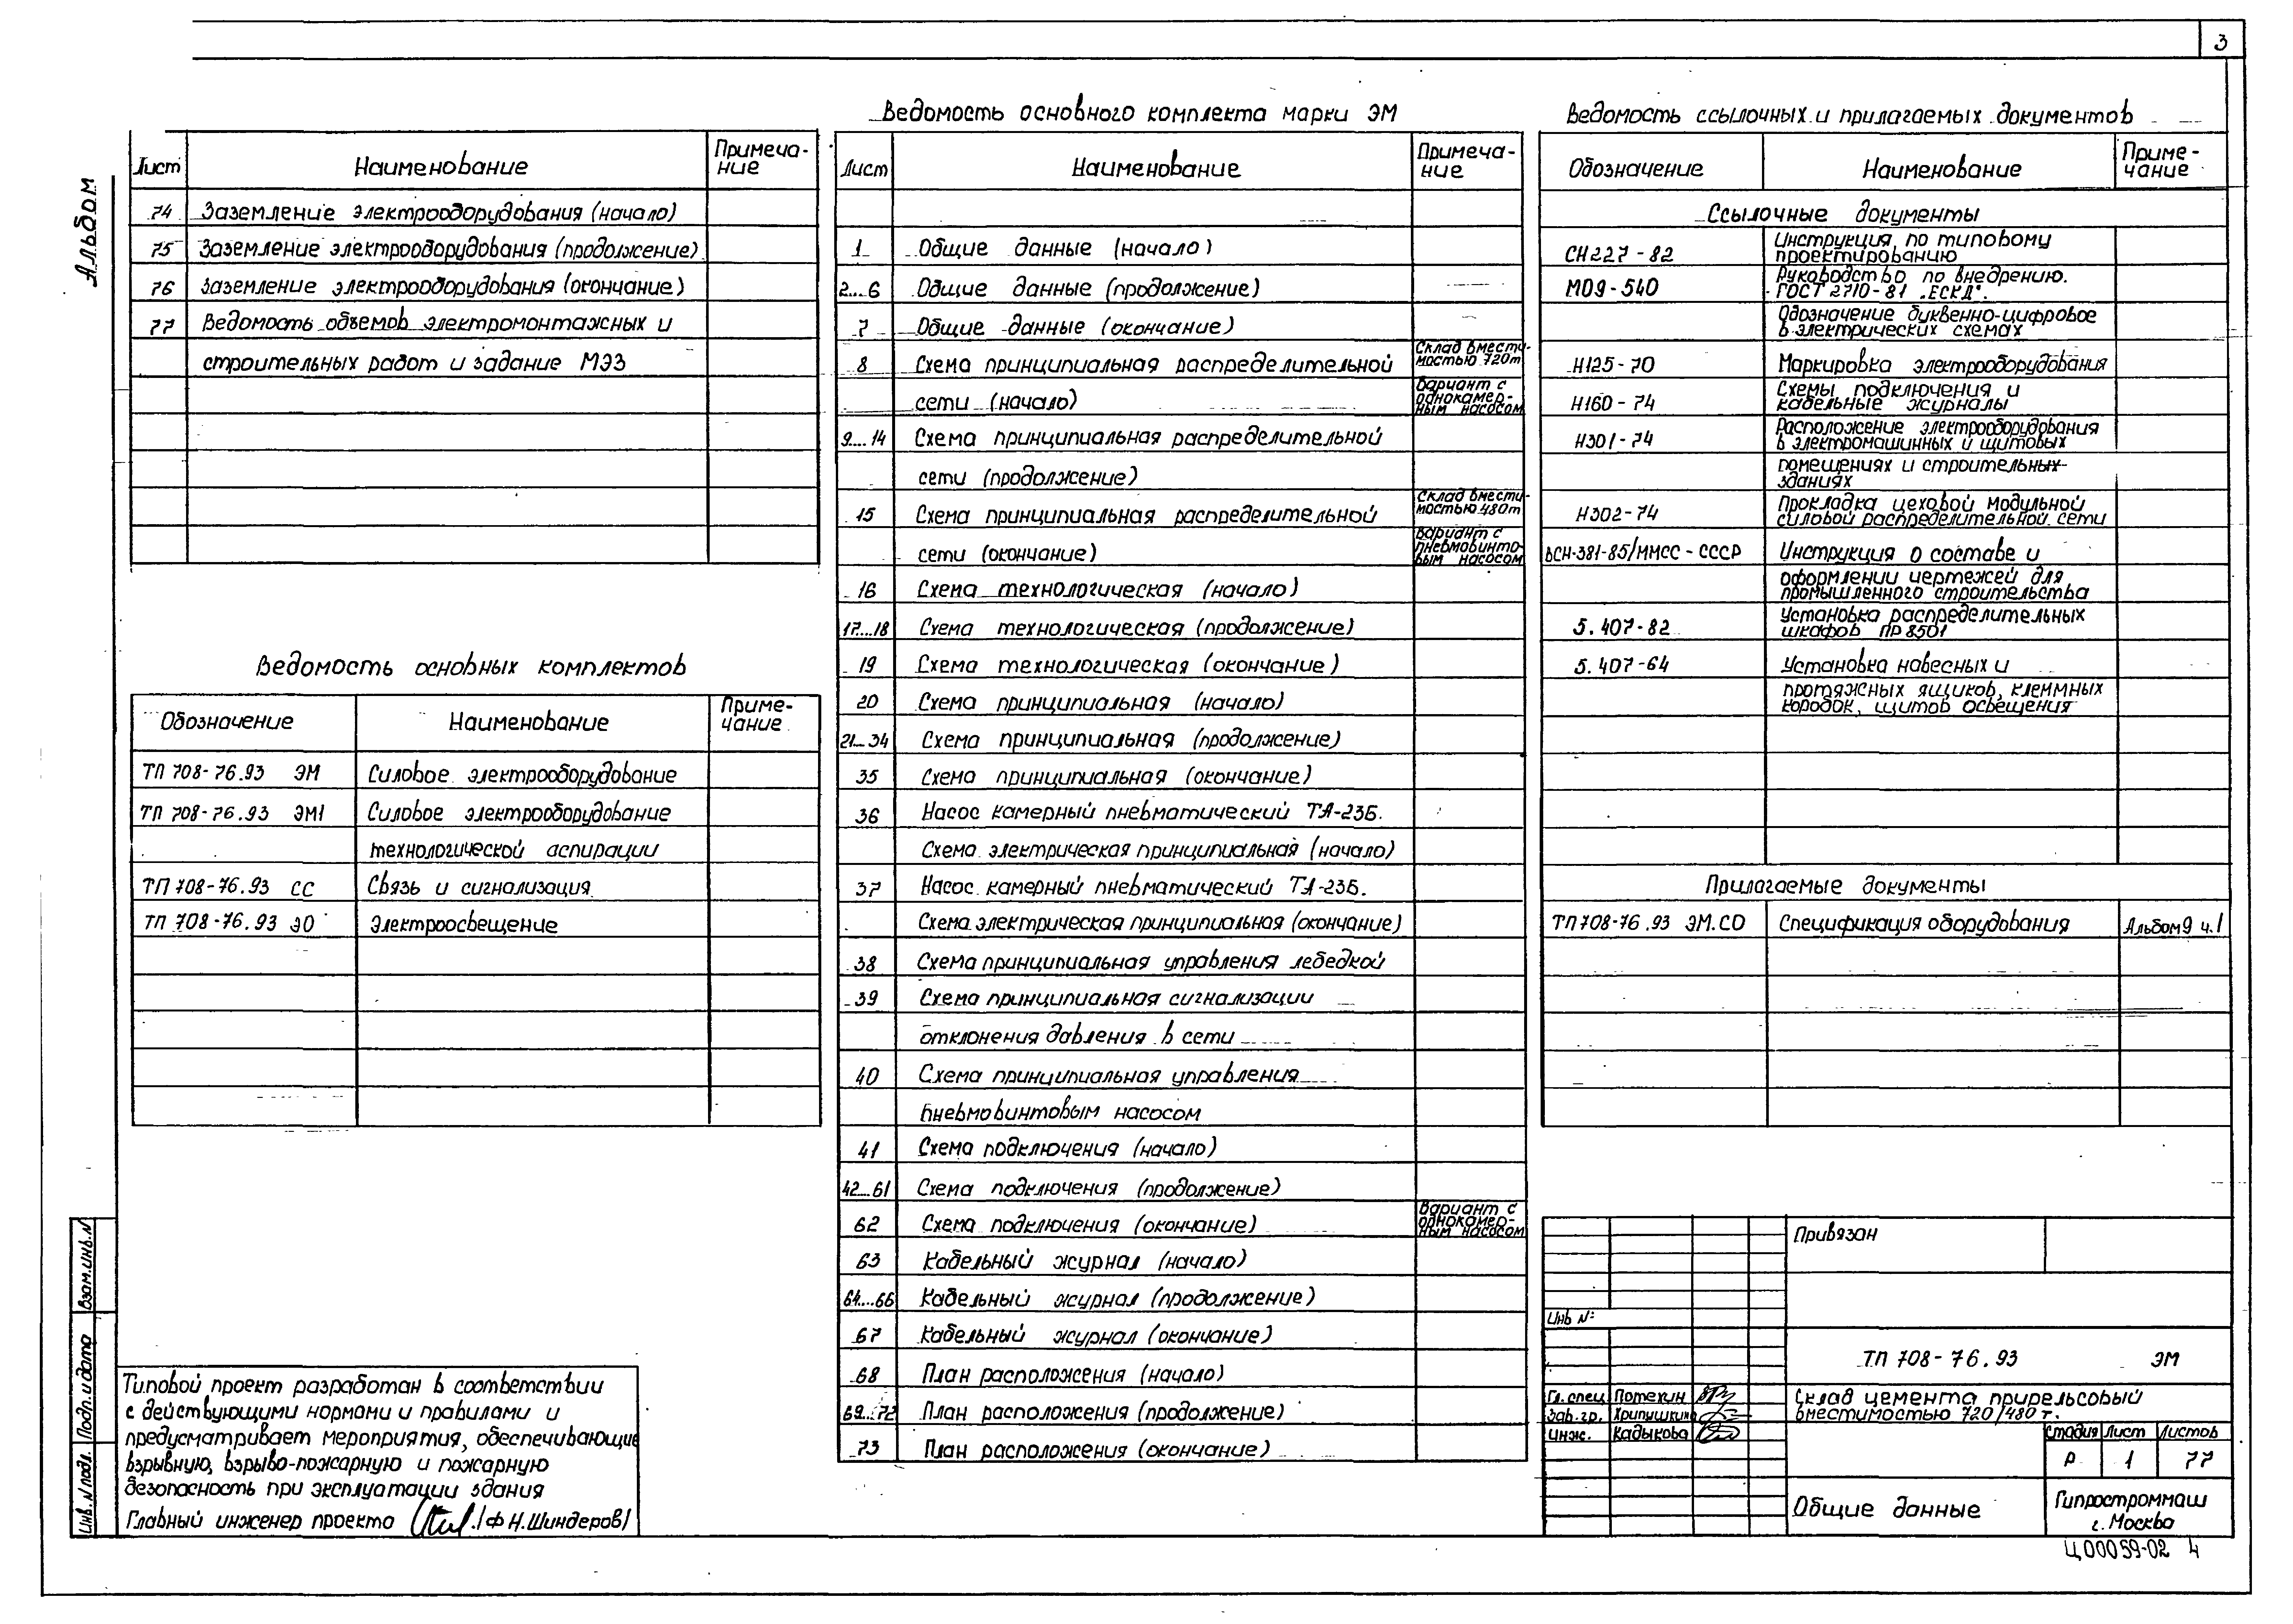 3
Альбом
Лист Наименование Примеча-
ние
74 Заземление электрооборудования (начало)
75 Заземление электрооборудования (продолжение)
76 Заземление электрооборудования (окончание)
77 Ведомость объемов электромонтажных и
строительных работ и задание МЭЗ
Ведомость основных комплектов
Обозначение Наименование Приме-
чание
ТП 708-76.93 ЭМ Силовое электрооборудование
ТП 708-76.93 ЭМ1 Силовое электрооборудование
технологической аспирации
ТП 708-76.93 СС Связь и сигнализация
ТП 708-76.93 ЭО Электроосвещение
Типовой проект разработан в соответствии
с действующими нормами и правилами и
предусматривает мероприятия, обеспечивающие
взрывную, взрыво-пожарную и пожарную
безопасность при эксплуатации здания
Главный инженер проекта /Ф Н.Шиндеров/
Взам.инв.N
Подп. и дата
Инв.N подл.
Ведомость основного комплекта марки ЭМ
Лист Наименование Примеча-
ние
1 Общие данные (начало)
2...6 Общие данные (продолжение)
7 Общие данные (окончание)
8 Схема принципиальная распределительной Склад вмести-
мостью 720т
сети (начало) Вариант с
однокамер-
ным насосом
9...14 Схема принципиальная распределительной
сети (продолжение)
15 Схема принципиальная распределительной Склад вмести-
мостью 480т
сети (окончание) Вариант с
пневмовинто-
вым насосом
16 Схема технологическая (начало)
17...18 Схема технологическая (продолжение)
19 Схема технологическая (окончание)
20 Схема принципиальная (начало)
21...34 Схема принципиальная (продолжение)
35 Схема принципиальная (окончание)
36 Насос камерный пневматический ТА-23Б.
Схема электрическая принципиальная (начало)
37 Насос камерный пневматический ТА-23Б.
Схема электрическая принципиальная (окончание)
38 Схема принципиальная управления лебедкой
39 Схема принципиальная сигнализации
отклонения давления в сети
40 Схема принципиальная управления
пневмовинтовым насосом
41 Схема подключения (начало)
42...61 Схема подключения (продолжение)
62 Схема подключения (окончание) Вариант с
однокамер-
ным насосом
63 Кабельный журнал (начало)
64...66 Кабельный журнал (продолжение)
67 Кабельный журнал (окончание)
68 План расположения (начало)
69...72 План расположения (продолжение)
73 План расположения (окончание)
Ведомость ссылочных и прилагаемых документов
Обозначение Наименование Приме-
чание
Ссылочные документы
СН 227-82 Инструкция по типовому
проектированию
М09-540 Руководство по внедрению.
ГОСТ 2710-81 „ЕСКД".
Обозначение буквенно-цифровое
в электрических схемах
Н125-70 Маркировка электрооборудования
Н160-74 Схемы подключения и
кабельные журналы
Н301-74 Расположение электрооборудования
в электромашинных и щитовых
помещениях и строительных
зданиях
Н302-74 Прокладка цеховой модульной
силовой распределительной сети
ВСН-381-85/ММСС-СССР Инструкция о составе и
оформлении чертежей для
промышленного строительства
5.407-82 Установка распределительных
шкафов ПР8501
5.407-64 Установка навесных и
протяжных ящиков, клеммных
коробок, щитов освещения
Прилагаемые документы
ТП708-76.93 ЭМ.СО Спецификация оборудования Альбом 9 ч.1
Привязан
Инв N:
ТП 708-76.93 ЭМ
Гл.спец. Потехин
Зав.гр. Хрипушкина
Инж. Кадыкова
Склад цемента прирельсовый
вместимостью 720/480 т.
Стадия Лист Листов
Р 1 77
Общие данные
Гипростроммаш
г. Москва
Ц00059-02 4